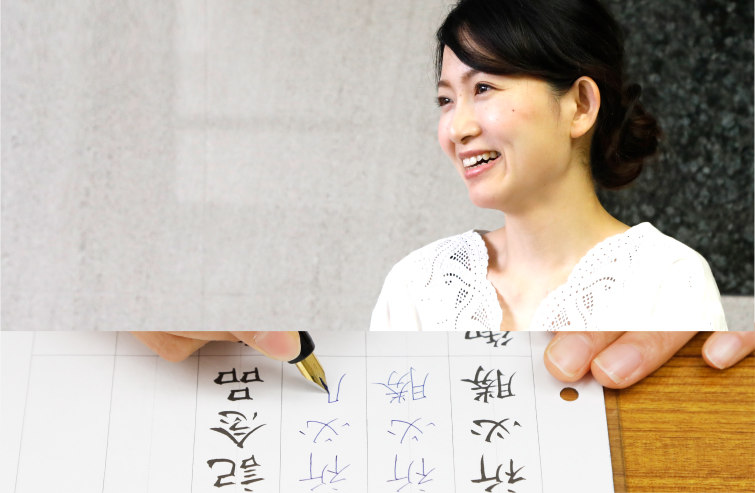 祈必勝御
祈必勝
祈必
記念品